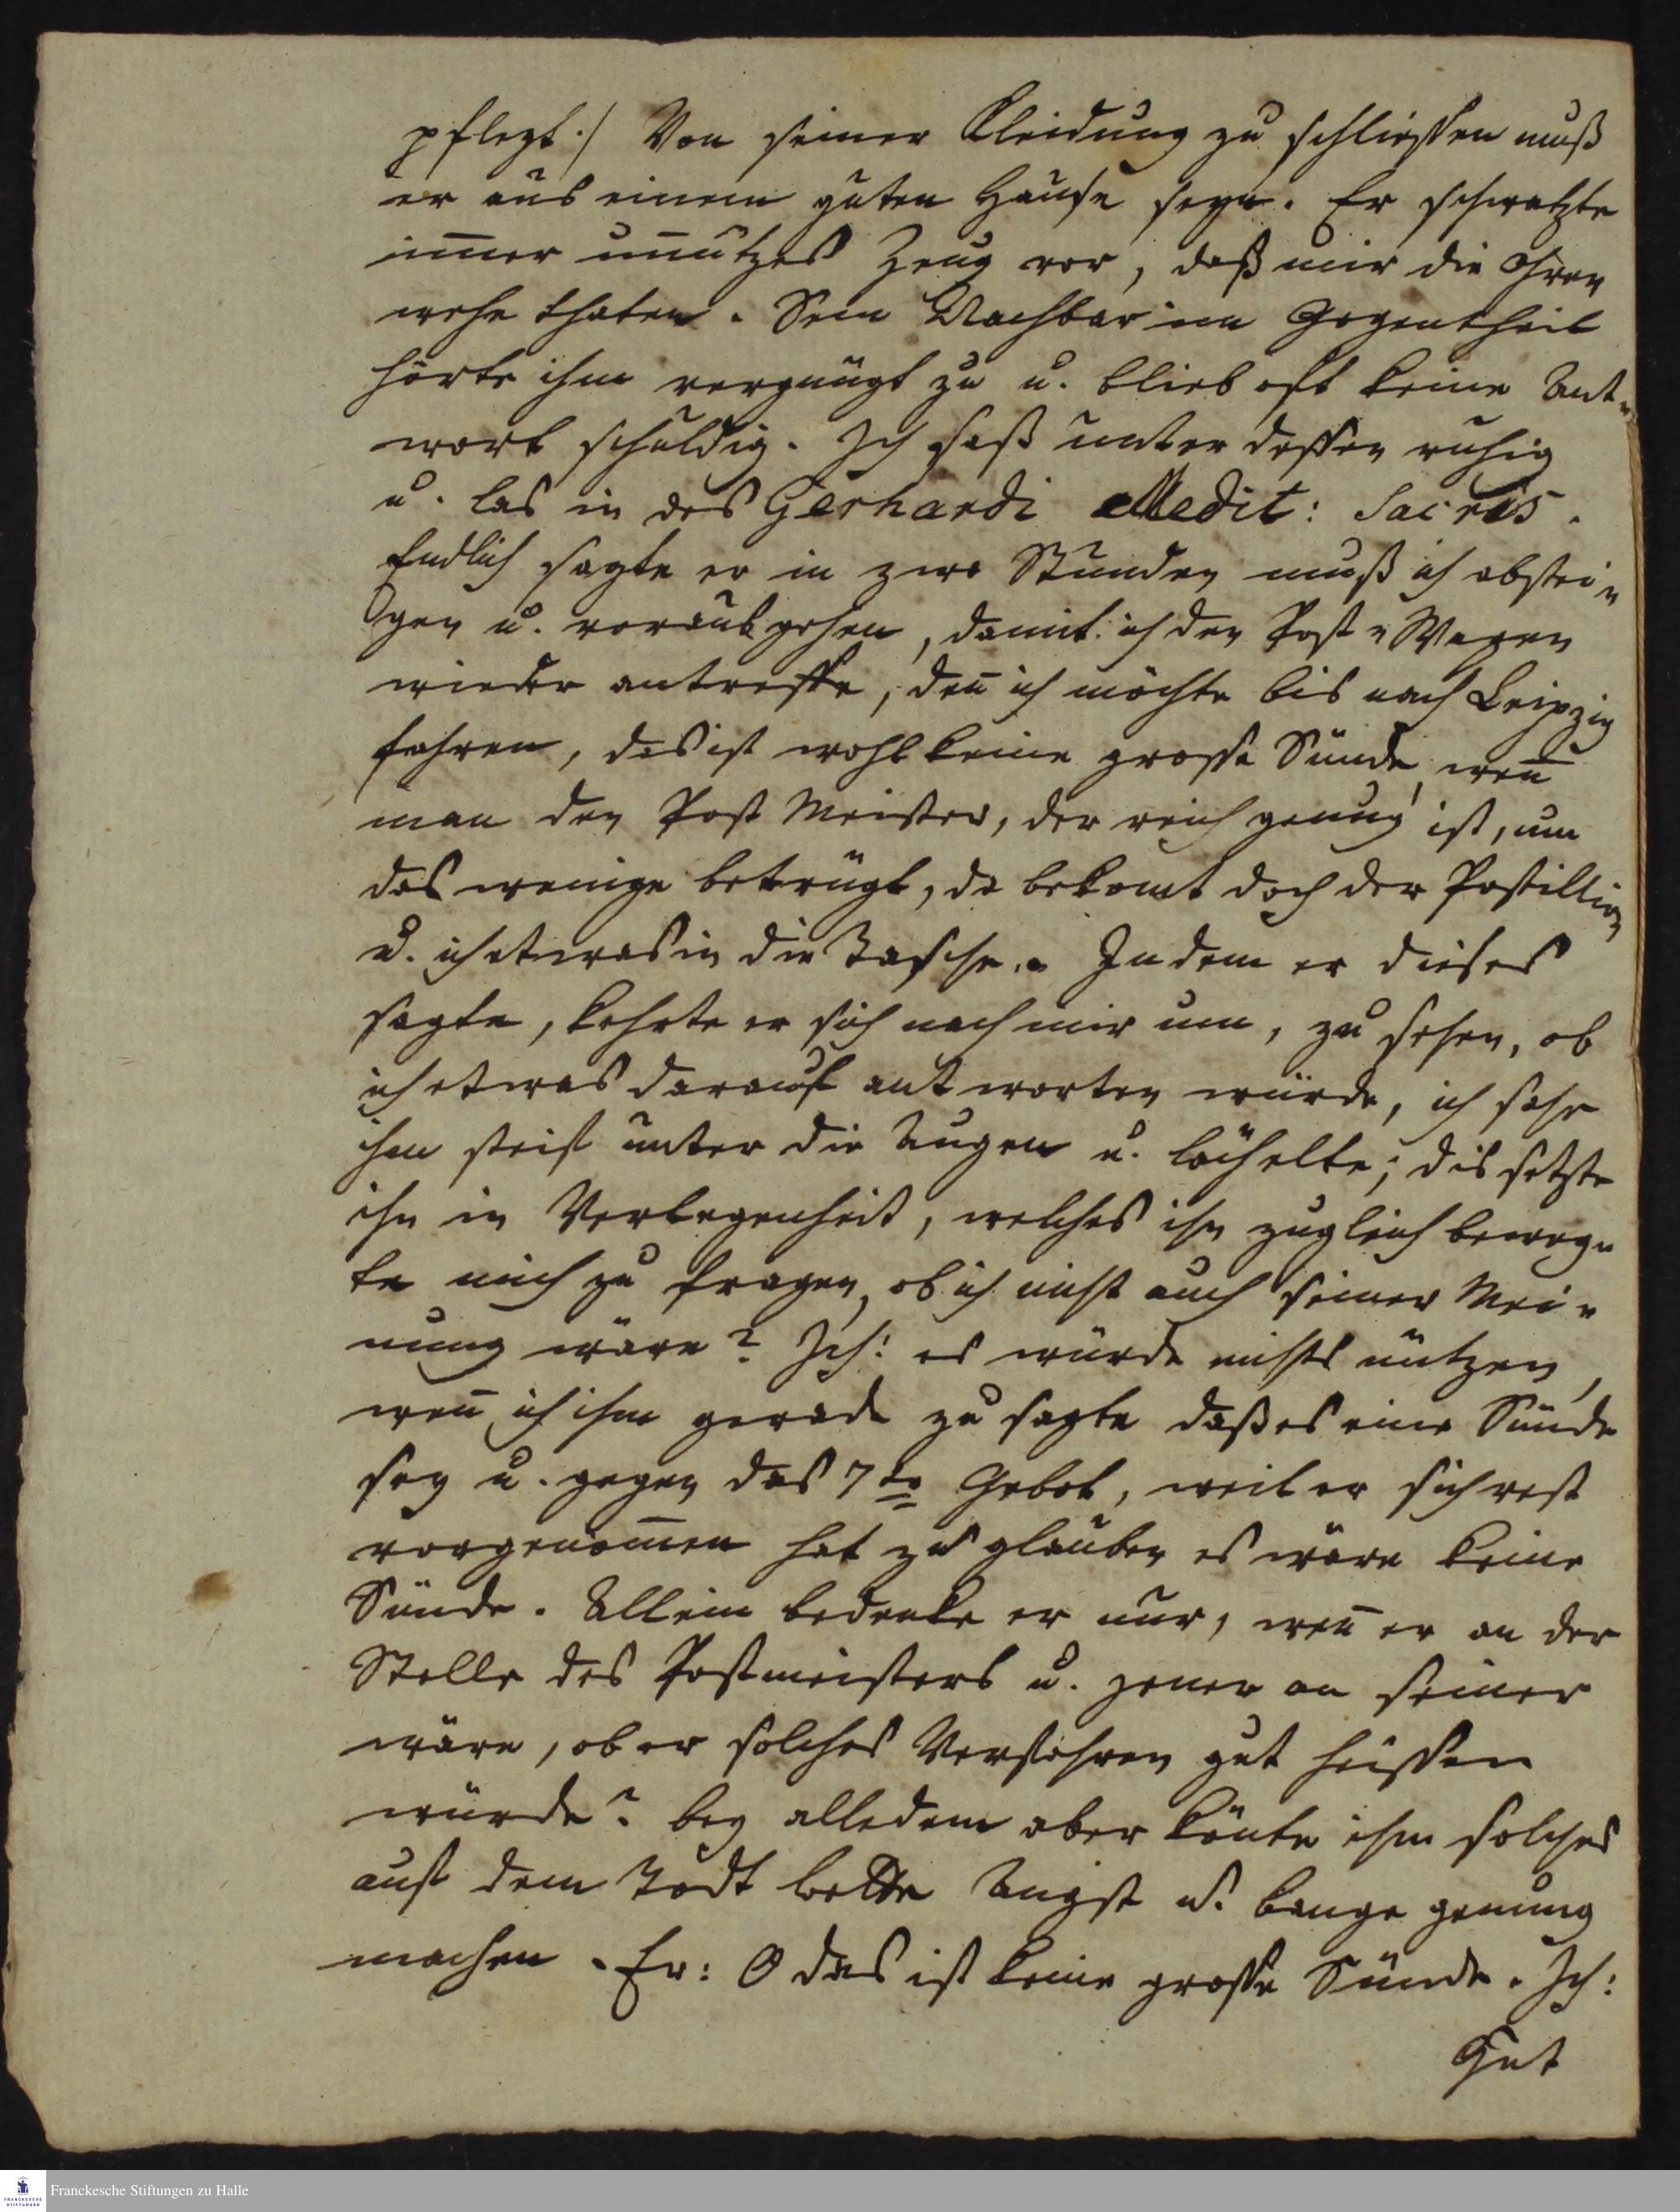 pflegt./ Von seiner Kleidung zu schliessen muß
er aus einem guten Hause seyn. Er schwatzte
im̄er un̄ützes Zeug vor, daß mir die Ohren
wehe thaten. Sein Nachbar im Gegentheil
hörte ihm vergnügt zu u. blieb oft keine Ant-
wort schuldig. Ich saß unter dessen ruhig
u. las in des Gerhardi Medit: Sacris.
Endlich sagte er in zwo Stunden muß ich abstei-
gen u. voraus gehen, damit ich den Post-Wagen
wieder antreffe, den̄ ich möchte bis nach Leipzig
fahren, das ist wohl keine grosse Sünde, wen̄
man den Post Meister, der reich genung ist, um
das wenige betrügt, da bekomt doch der Postillion
u. ich etwas in die Tasche. Indem er dieses
sagte, kehrte er sich nach mir um, zu sehen, ob
ich etwas darauf antworten würde, ich sahe
ihm steif unter die Augen u. lächelte; dis setzte
ihn in Verlegenheit, welches ihn zugleich beweg-
te mich zu fragen, ob ich nicht auch seiner Mei-
nung wäre? Ich: es würde nichts nützen,
wen̄ ich ihm gerade zu sagte daß es eine Sünde
sey u. gegen das 7te Gebot, weil er sich vest
vorgenom̄en hat zu glauben es wäre keine
Sünde. Allein bedenke er nur, wen̄ er an der
Stelle des Postmeisters u. jener an seiner
wäre, ob er solches Verfahren gut heissen
würde? bey alledem aber könte ihm solches
auf dem Todt bette Angst u. bange genung
machen. Er: O das ist keine grosse Sünde. Ich:
Gut
Franckesche Stiftungen zu Halle
FRANCKESCHE
STIFTUNGEN